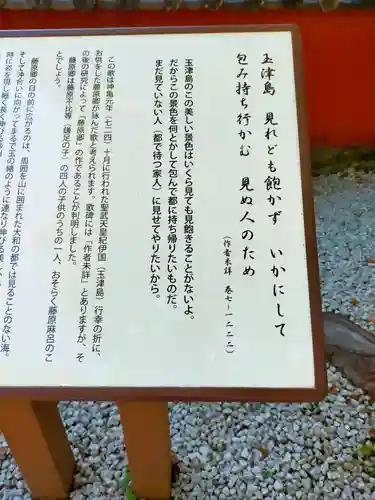 玉津島　見れども飽かず　いかにして
包み持ち行かむ　見ぬ人のため
（作者未詳　巻七ー一二二二）
玉津島のこの美しい景色はいくら見ても見飽きることがないよ。
だからこの景色を何とかして包んで都に持ち帰りたいものだ。
まだ見ていない人（都で待つ家人）に見せてやりたいから。
この歌は神亀元年（七二四）十月に行われた聖武天皇紀伊国（玉津島）行幸の折に、
お供をした藤原卿が詠んだ歌と考えられます。歌碑には「作者未詳」とありますが、そ
の後の研究によって「藤原卿」の作であることが判明しました。
藤原卿は藤原不比等（鎌足の子）の四人の子供のうちの一人、おそらく藤原麻呂のこ
とでしょう。
藤原卿の目の前に広がるのは、周囲を山に囲まれた大和の都では見ることのない海。
そして沖合いに向かってまるで玉の緒のように連なり伸びる美し